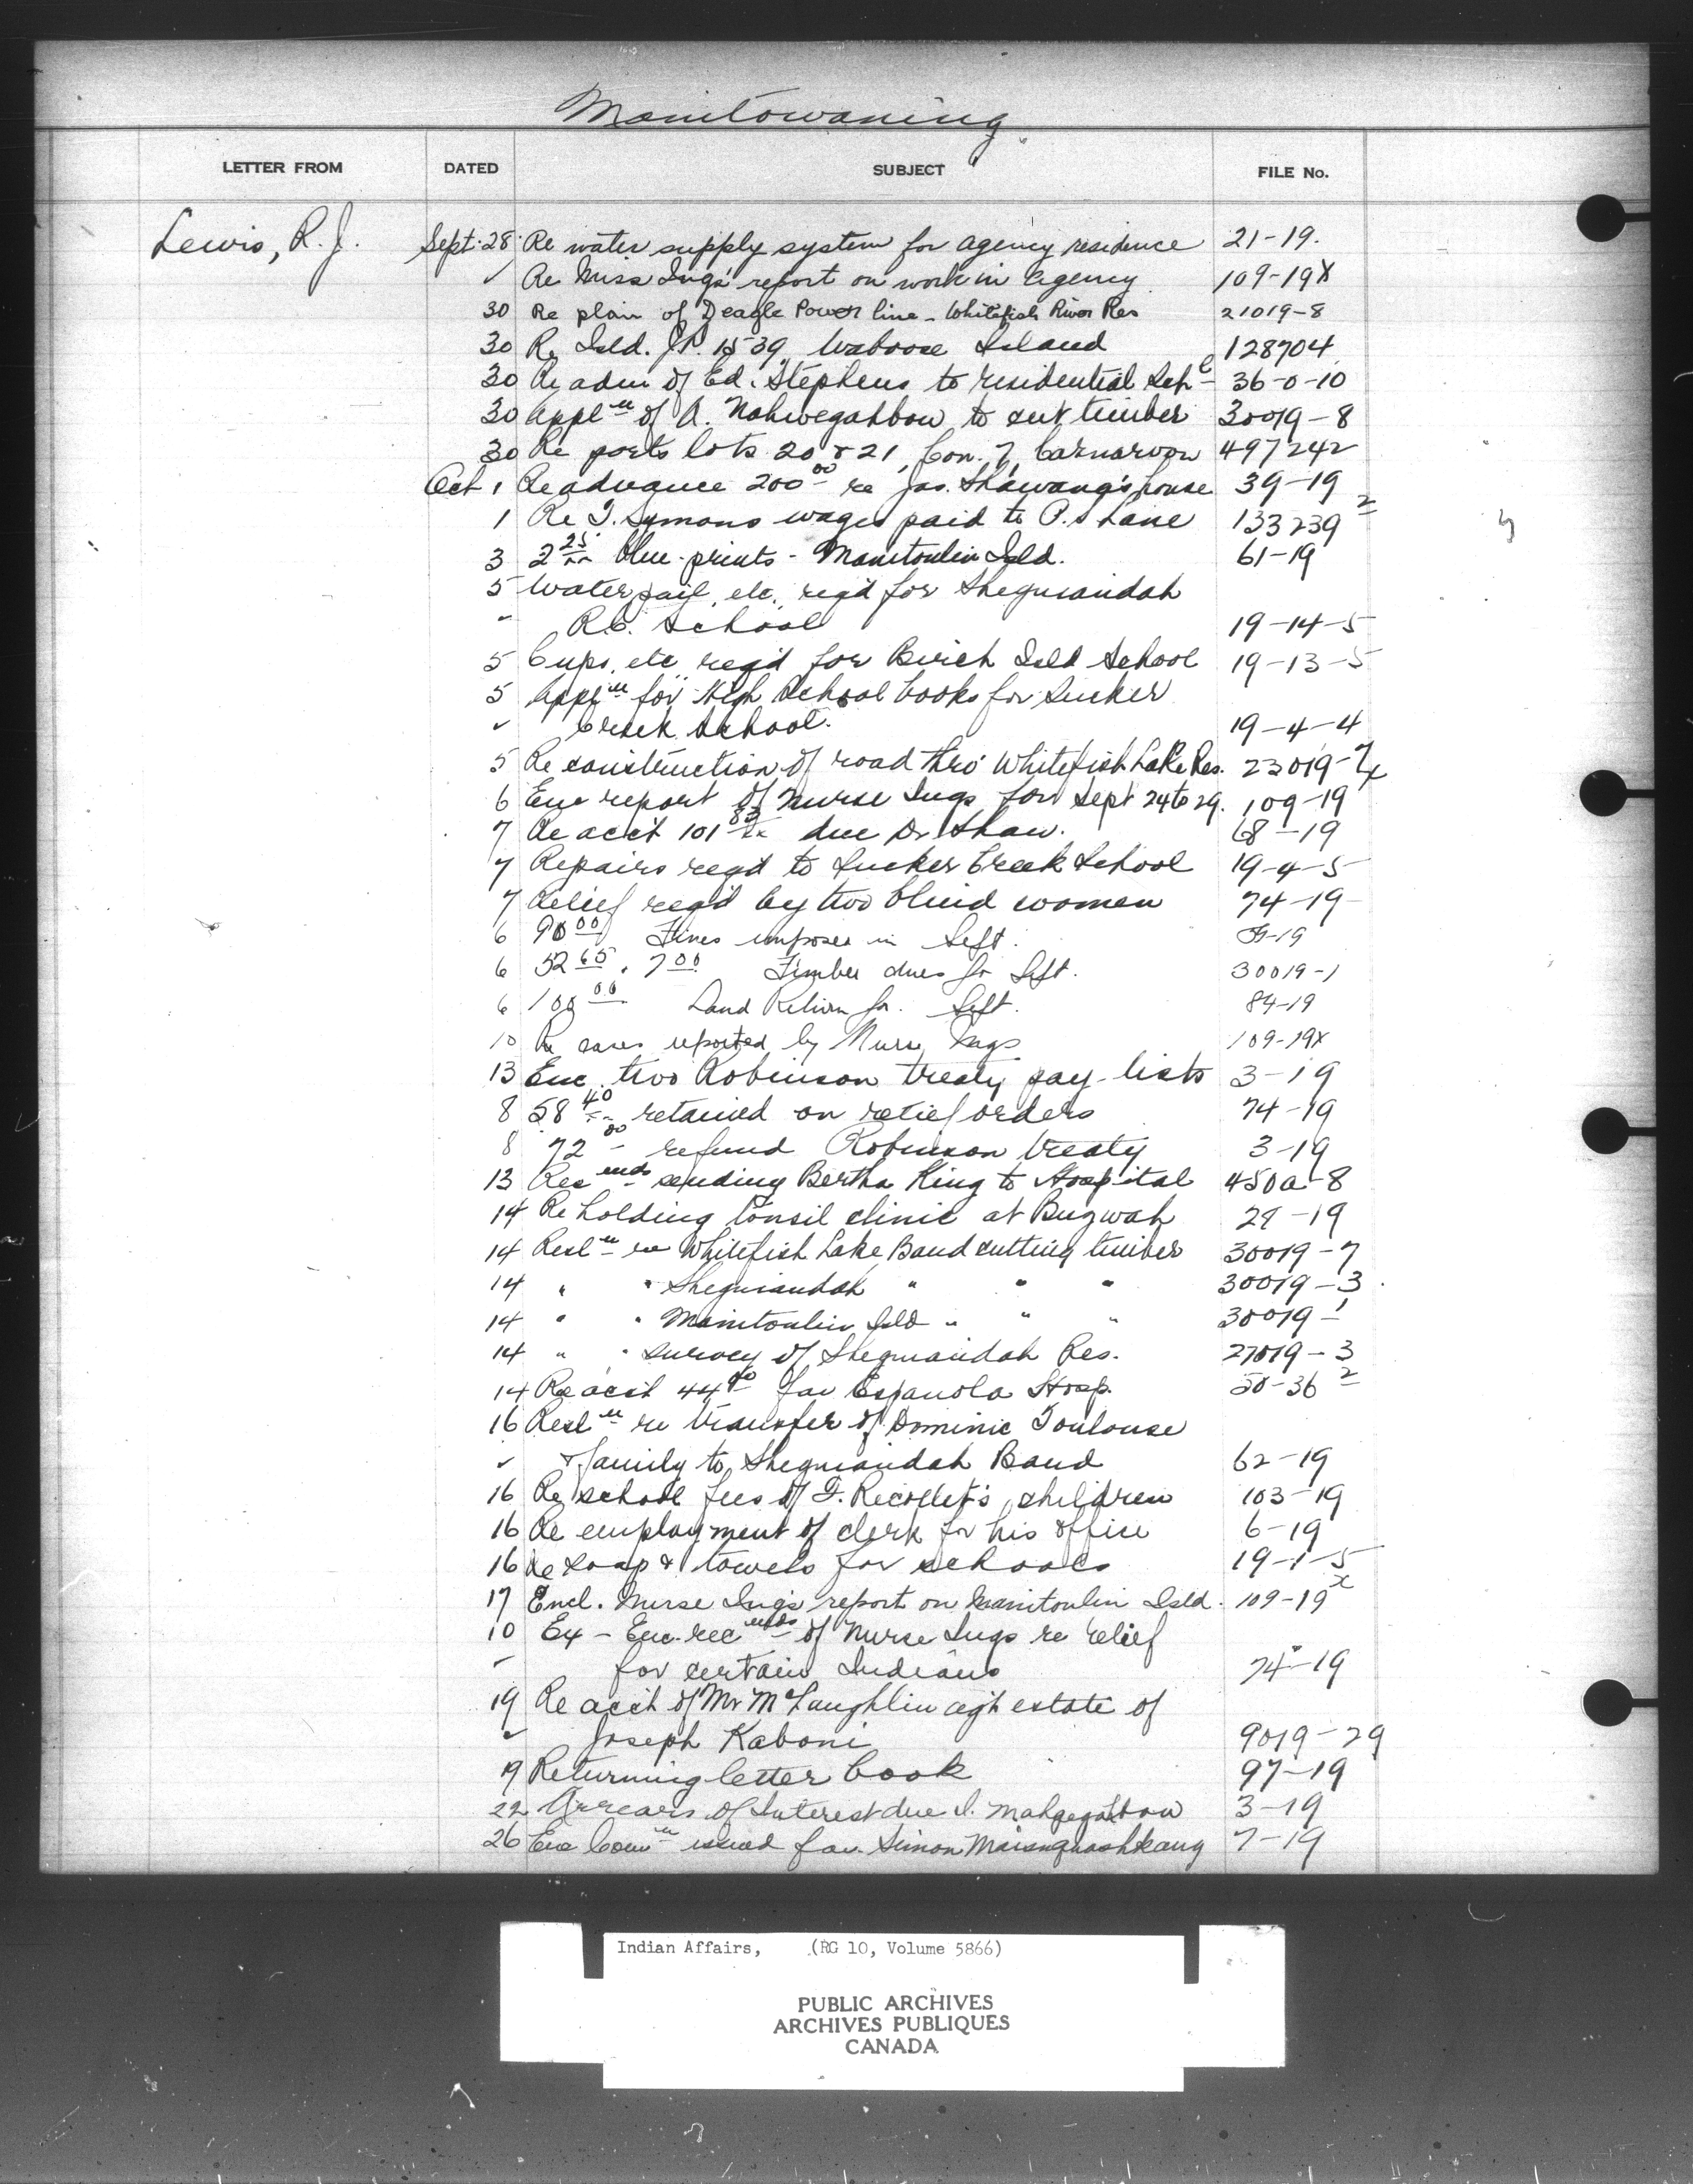 Manitowaning
LETTER FROM DATED SUBJECT FILE No.
Lewis, R. J. Sept. 28 Re water supply system for agency residence 21-19.
" Re Miss Ings' report on work in Agency 109-19x
30 Re plan of Deagle Power line - Whitefish River Res 21019-8
30 Re Isld. J.P. 1539, Waboose Island 128704
30 Re adm of Ed. Stephens to residential Sch 36-0-10
30 Appln of A. Nahwegahbow to cut timber 30019-8
30 Re parts lots 20 & 21, Con. 7, Carnarvon 497242
Oct 1 Re advance 200.00 re Jas. Shawana's house 39-19
1 Re T. Symons wages paid to P. Lane 133239-2
3 2.25 blue-prints - Manitoulin Isld. 61-19
5 Water pail, etc. reqd for Sheguiandah
" R.C. School 19-14-5
5 Cups, etc reqd for Birch Isld School 19-13-5
5 Appln for High School books for Sucker
" Creek School. 19-4-4
5 Re construction of road thro' Whitefish Lake Res. 23019-7x
6 Enc report of Nurse Ings for Sept 24 to 29. 109-19
7 Re acct 101.83 due Dr Shaw. 68-19
7 Repairs reqd to Sucker Creek School 19-4-5
7 Relief reqd by two blind women 74-19
6 90.00 Fines imposed in Sept.
6 52.65 . 7.00 Timber dues for Sept. 30019-1
6 100.00 Land Return for Sept. 84-19
10 Re cases reported by Nurse Ings 109-19x
13 Enc. two Robinson treaty pay-lists 3-19
8 58.40 retained on relief orders 74-19
8 72.00 refund Robinson treaty 3-19
13 Recmends sending Bertha King to Hospital 450a-8
14 Re holding tonsil clinic at Buzwah 29-19
14 Resln re Whitefish Lake Band cutting timber 30019-7
14 " " Sheguiandah " " " 30019-3
14 " " Manitoulin Isld " " " 30019-1
14 " " survey of Sheguiandah Res. 27019-3
14 Re acct 44.90 fav Espanola Hosp. 50-36-2
16 Resln re transfer of Dominic Toulouse
" & family to Sheguiandah Band 62-19
16 Re school fees of F. Recollet's children 103-19
16 Re employment of clerk for his office 6-19
16 Re soap & towels for schools 19-1-5
17 Encl. Nurse Ings report on Manitoulin Isld. 109-19x
10 Ex - Enc. recmnds of Nurse Ings re relief
" for certain Indians 74-19
19 Re acct of Mr McLaughlin agst estate of
" Joseph Kaboni 9019-29
19 Returning letter book 97-19
22 Arrears of Interest due 3-19
26 Enc issued fav. Simon 7-19
Indian Affairs, (RG 10, Volume 5866)
PUBLIC ARCHIVES
ARCHIVES PUBLIQUES
CANADA